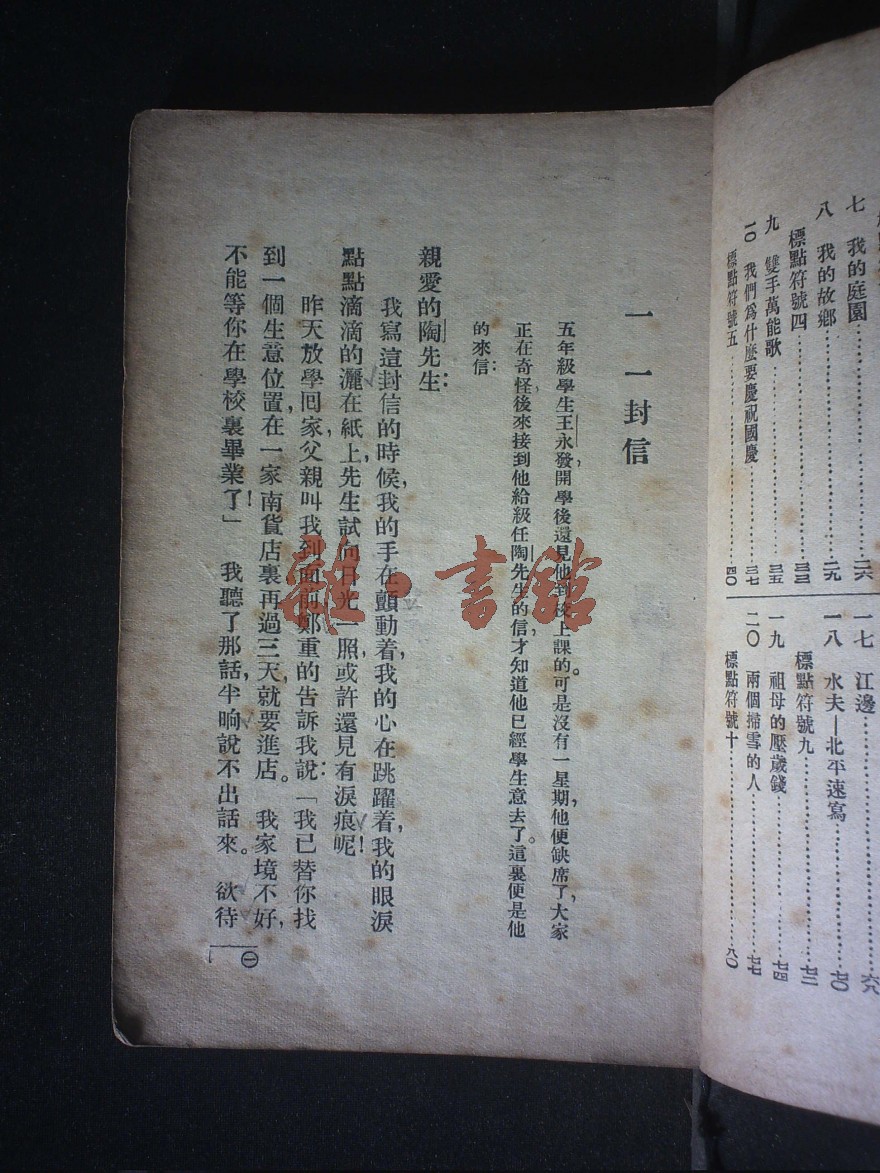 七 我的庭園 二六
八 我的故鄉 二九
標點符號四 三三
九 雙手萬能歌 三五
一〇 我們爲什麼要慶祝國慶 三七
標點符號五 四〇
一七 江邊 六八
一八 水夫—北平速寫 七〇
標點符號九 七三
一九 祖母的壓歲錢 七四
二〇 兩個掃雪的人 七七
標點符號十 八〇
一 一封信
五年級學生王永發,開學後還見他到校上課的。可是沒有一星期,他便缺席了,大家
正在奇怪,後來接到他給級任陶先生的信,才知道他已經學生意去了。這裏便是他
的來信:
親愛的陶先生:
我寫這封信的時候,我的手在顫動着,我的心在跳躍着,我的眼淚
點點滴滴的灑在紙上,先生試向日光一照,或許還見有淚痕呢!
昨天放學回家,父親叫我到面前,鄭重的告訴我說:「我已替你找
到一個生意位置,在一家南貨店裏,再過三天,就要進店。我家境不好,
不能等你在學校裏畢業了!」我聽了那話,半晌說不出話來。欲待
一
雜·書館